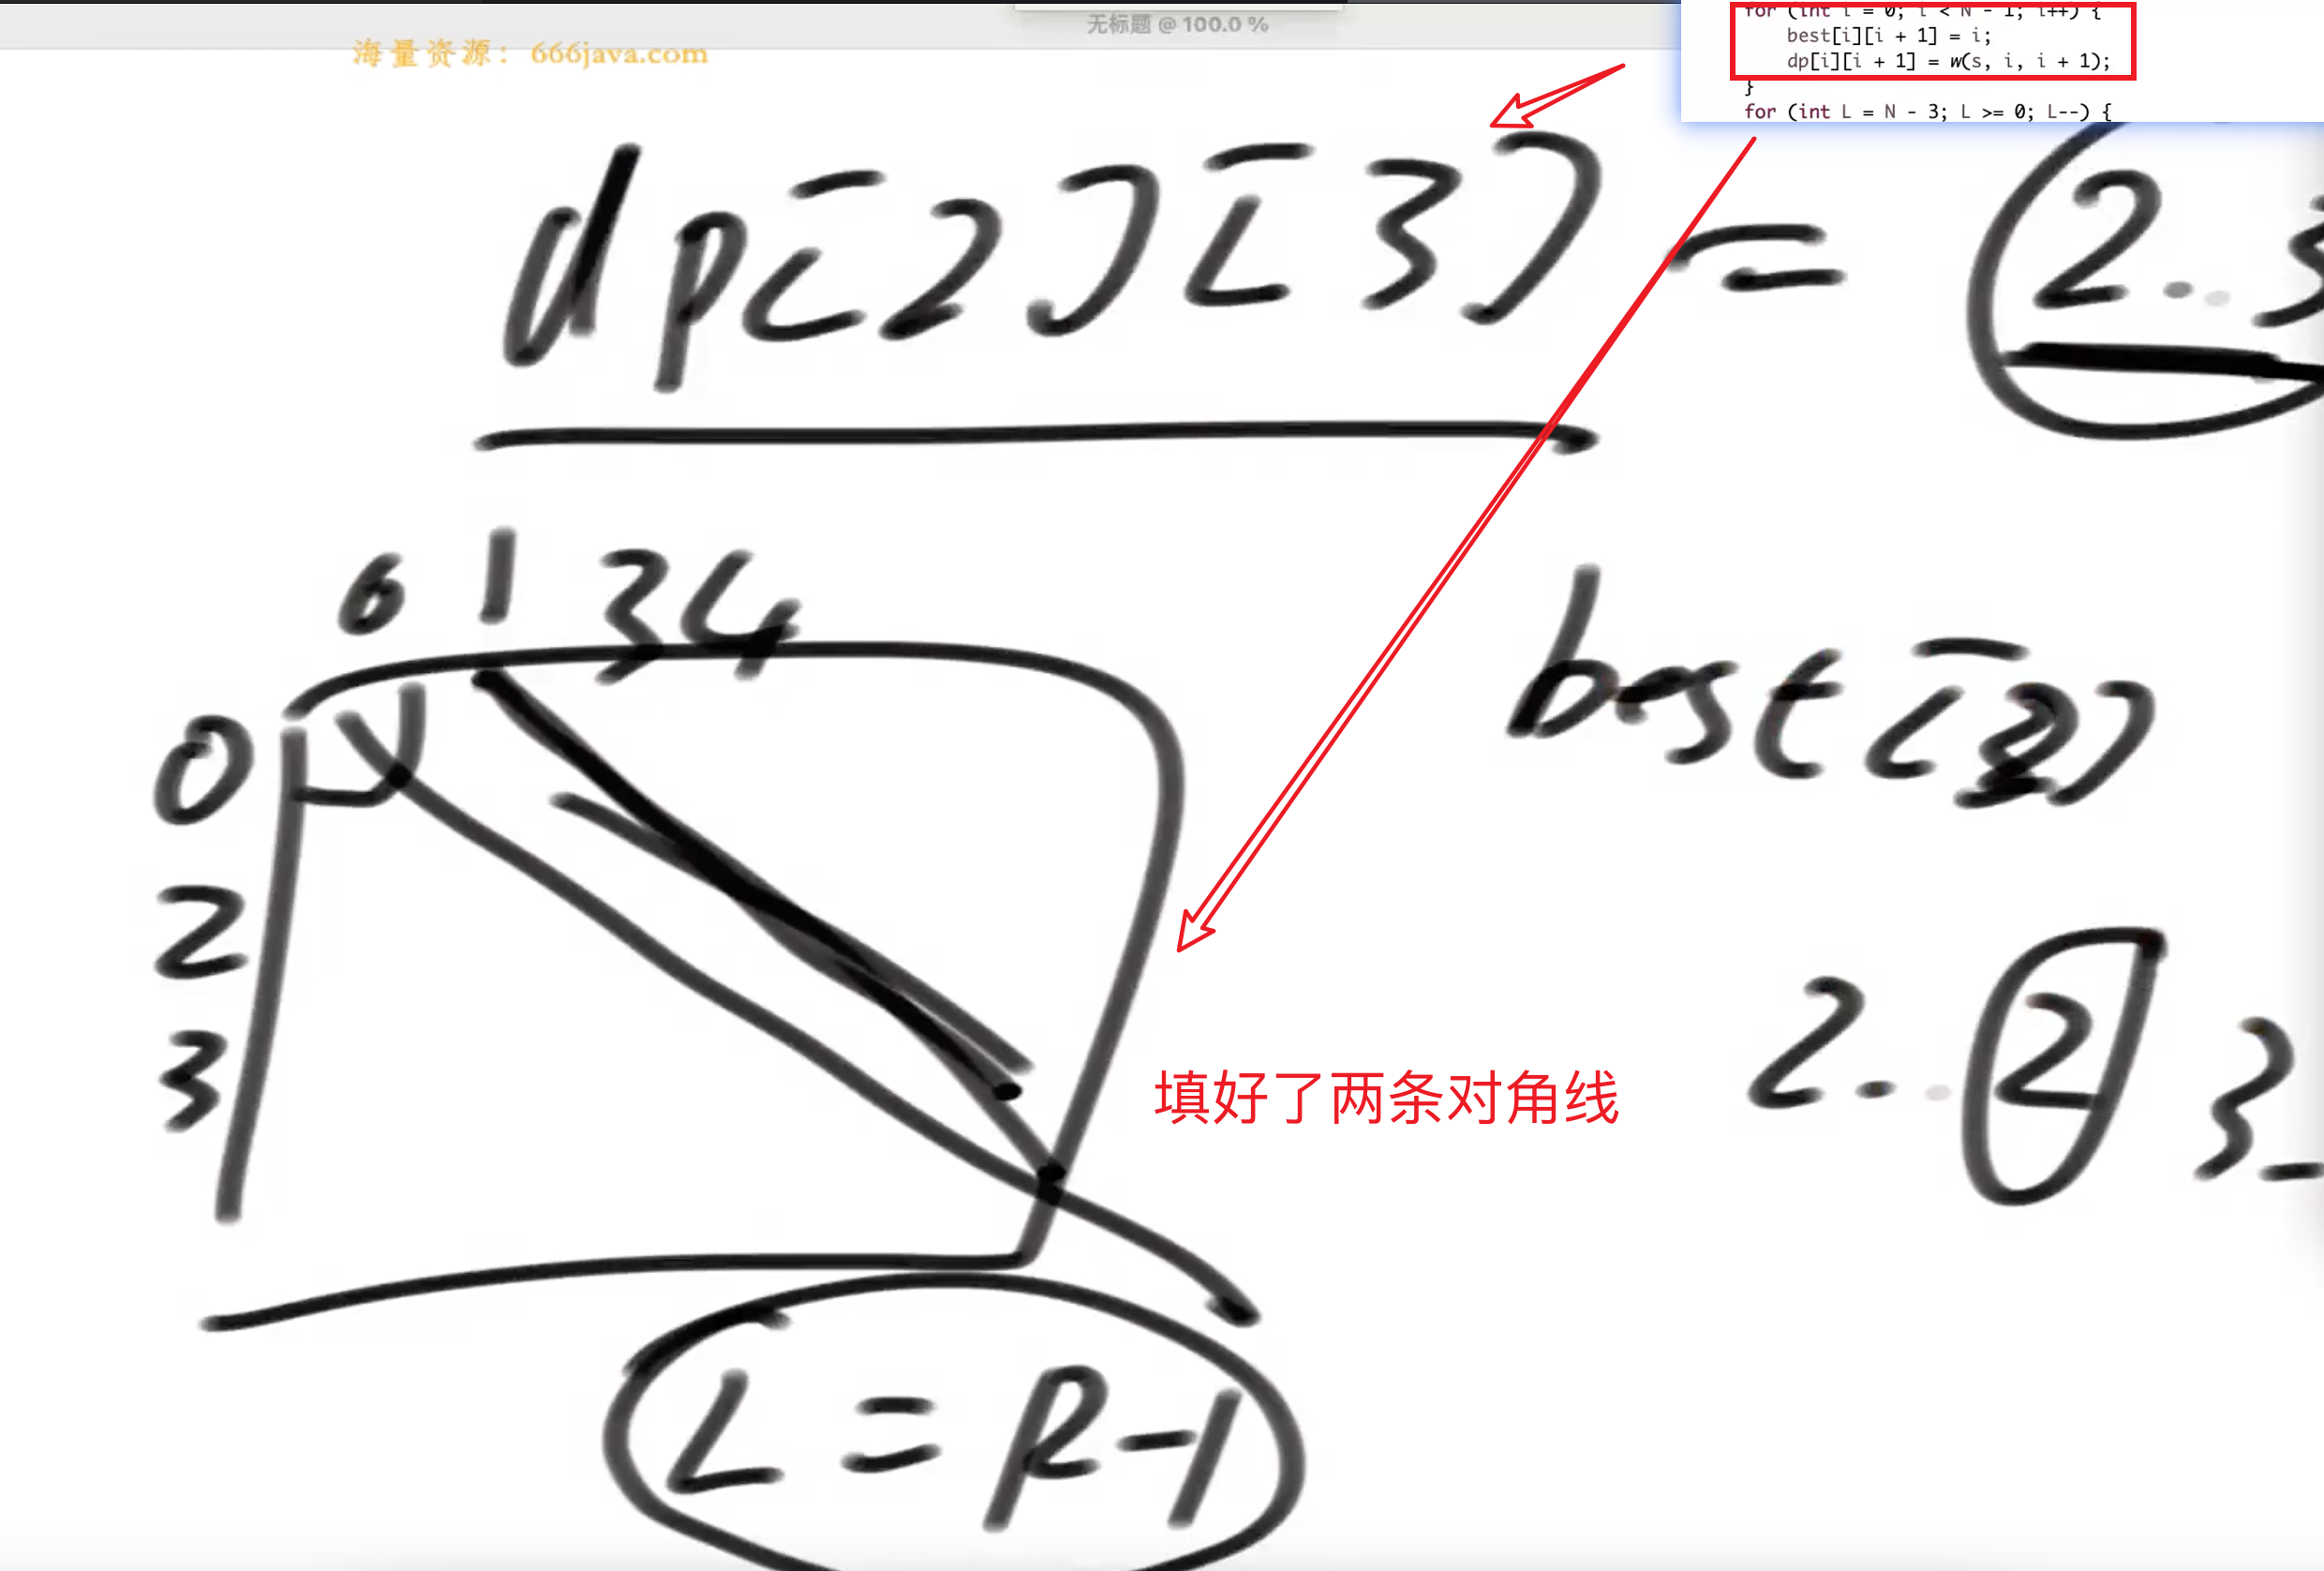 无标题 @ 100.0 %
海量资源：666java.com
for (int i = 0; i < N - 1; i++) {
best[i][i + 1] = i;
dp[i][i + 1] = w(s, i, i + 1);
}
for (int L = N - 3; L >= 0; L--) {
dp[2][3] = 2..3
0 1 3 4
0
2
3
best[2]
2.. 2 3
填好了两条对角线
L = R-1